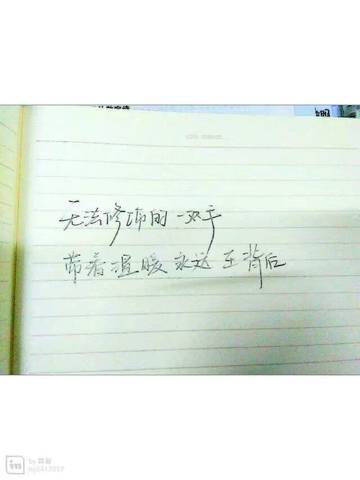 无法修饰的一双手
带着温暖永远在背后